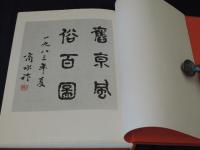 舊京風
俗百圖
一九八三年夏